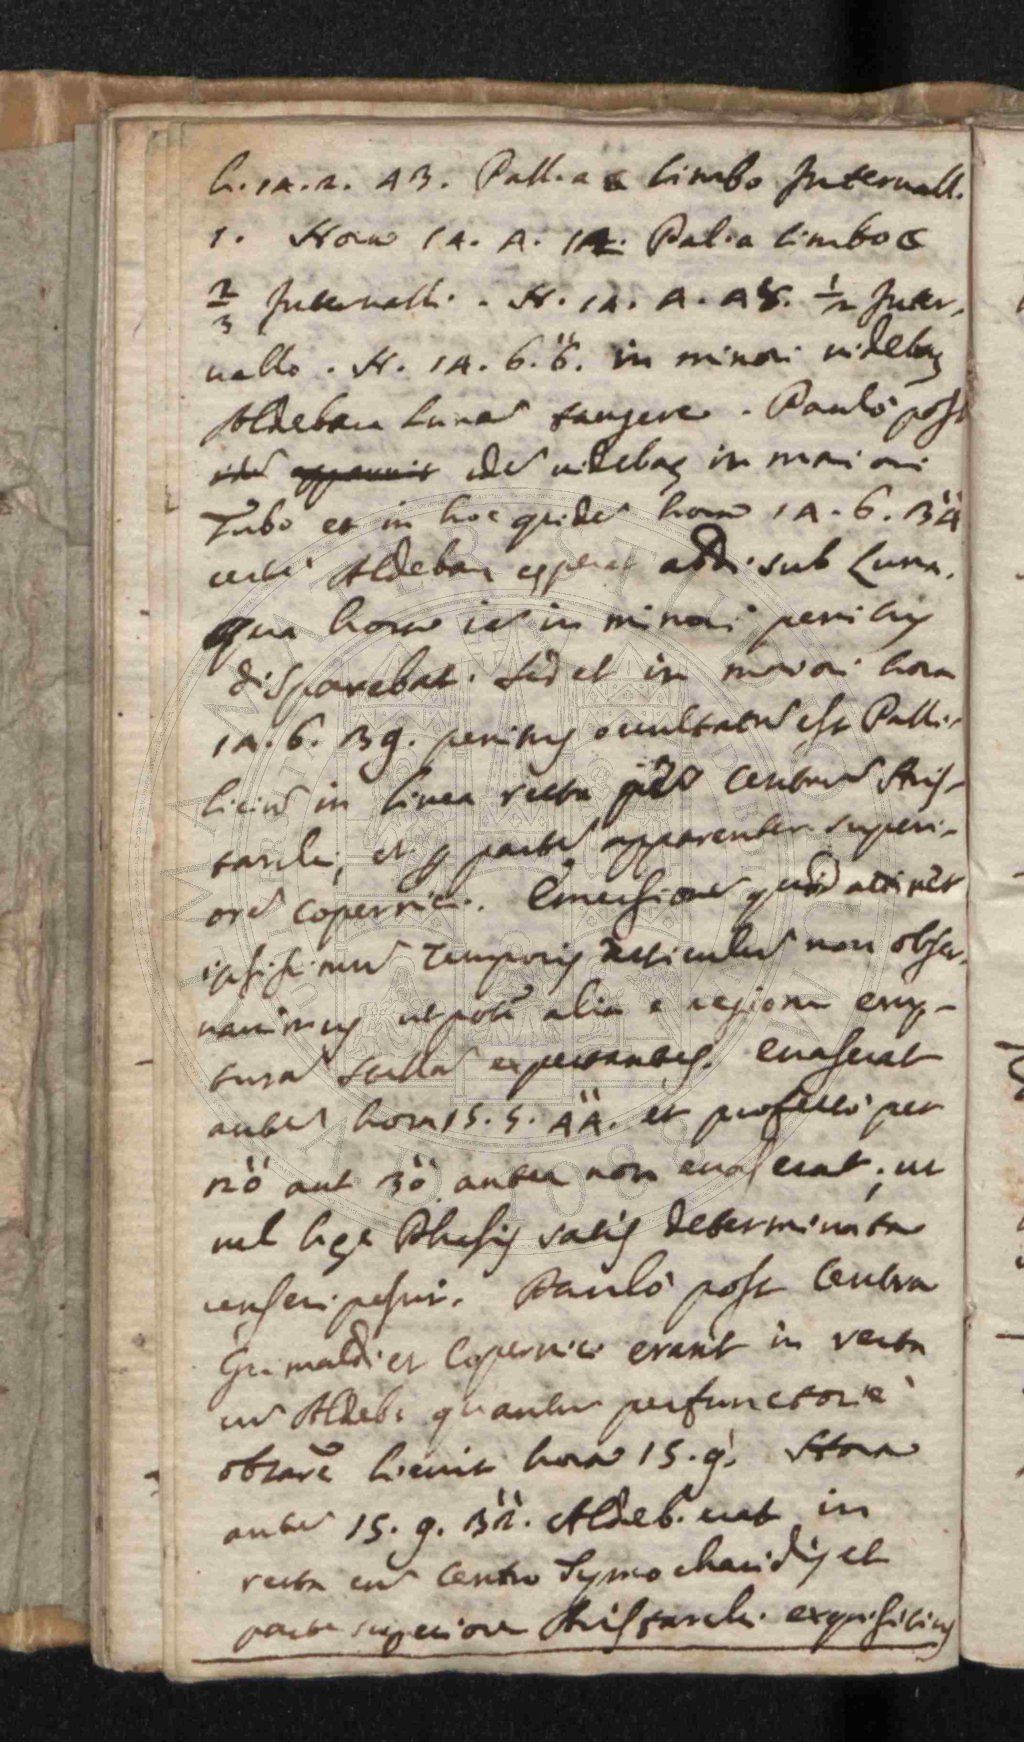 h. 14. 2. 43. Pall. a ☾ limbo Internall.
1. Hora 14. 4. 12. Pal. a limbo ☾
2/3 Internalli. H. 14. 4. 48. 1/2 Inter-
uallo. H. 14. 6. 6̈. in minori uidebat̃
Aldebara Lunã tangere. Paulò post
idẽ apparuit idẽ uidebat̃ in maiori
Tubo et in hoc quidẽ hora 14. 6. 34̈
certè Aldebara cæperat abdi sub Luna.
Qua hora iã in minori penitus
disparebat. Sed et in maiori hora
14. 6. 39. penitus occultatũ est Palli-
liciũ in linea recta per Centrum Aris-
tarchi, et partẽ apparenter superi-
orẽ Copernici. Emersionẽ quod attinet
ipsissimũ Temporis articulũ non obser-
uauimus utpotè alia e regione erup-
turã stellã expectantes. Euaserat
autẽ hora 15. 5. 44̈. et profectò per
20̈ aut 30̈ antea non euaserat; ut
uel hæc Phasis satis determinata
censeri possit. Paulò post Centra
Grimaldi et Copernici erant in recta
cũ Aldeb: quantũ perfunctoriè
obseruare licuit hora 15. 9. Hora
autẽ 15. 9. 32̈. Aldeb. erat in
recta cũ Centro Tymocharidis et
parte superiore Aristarchi exquisitius